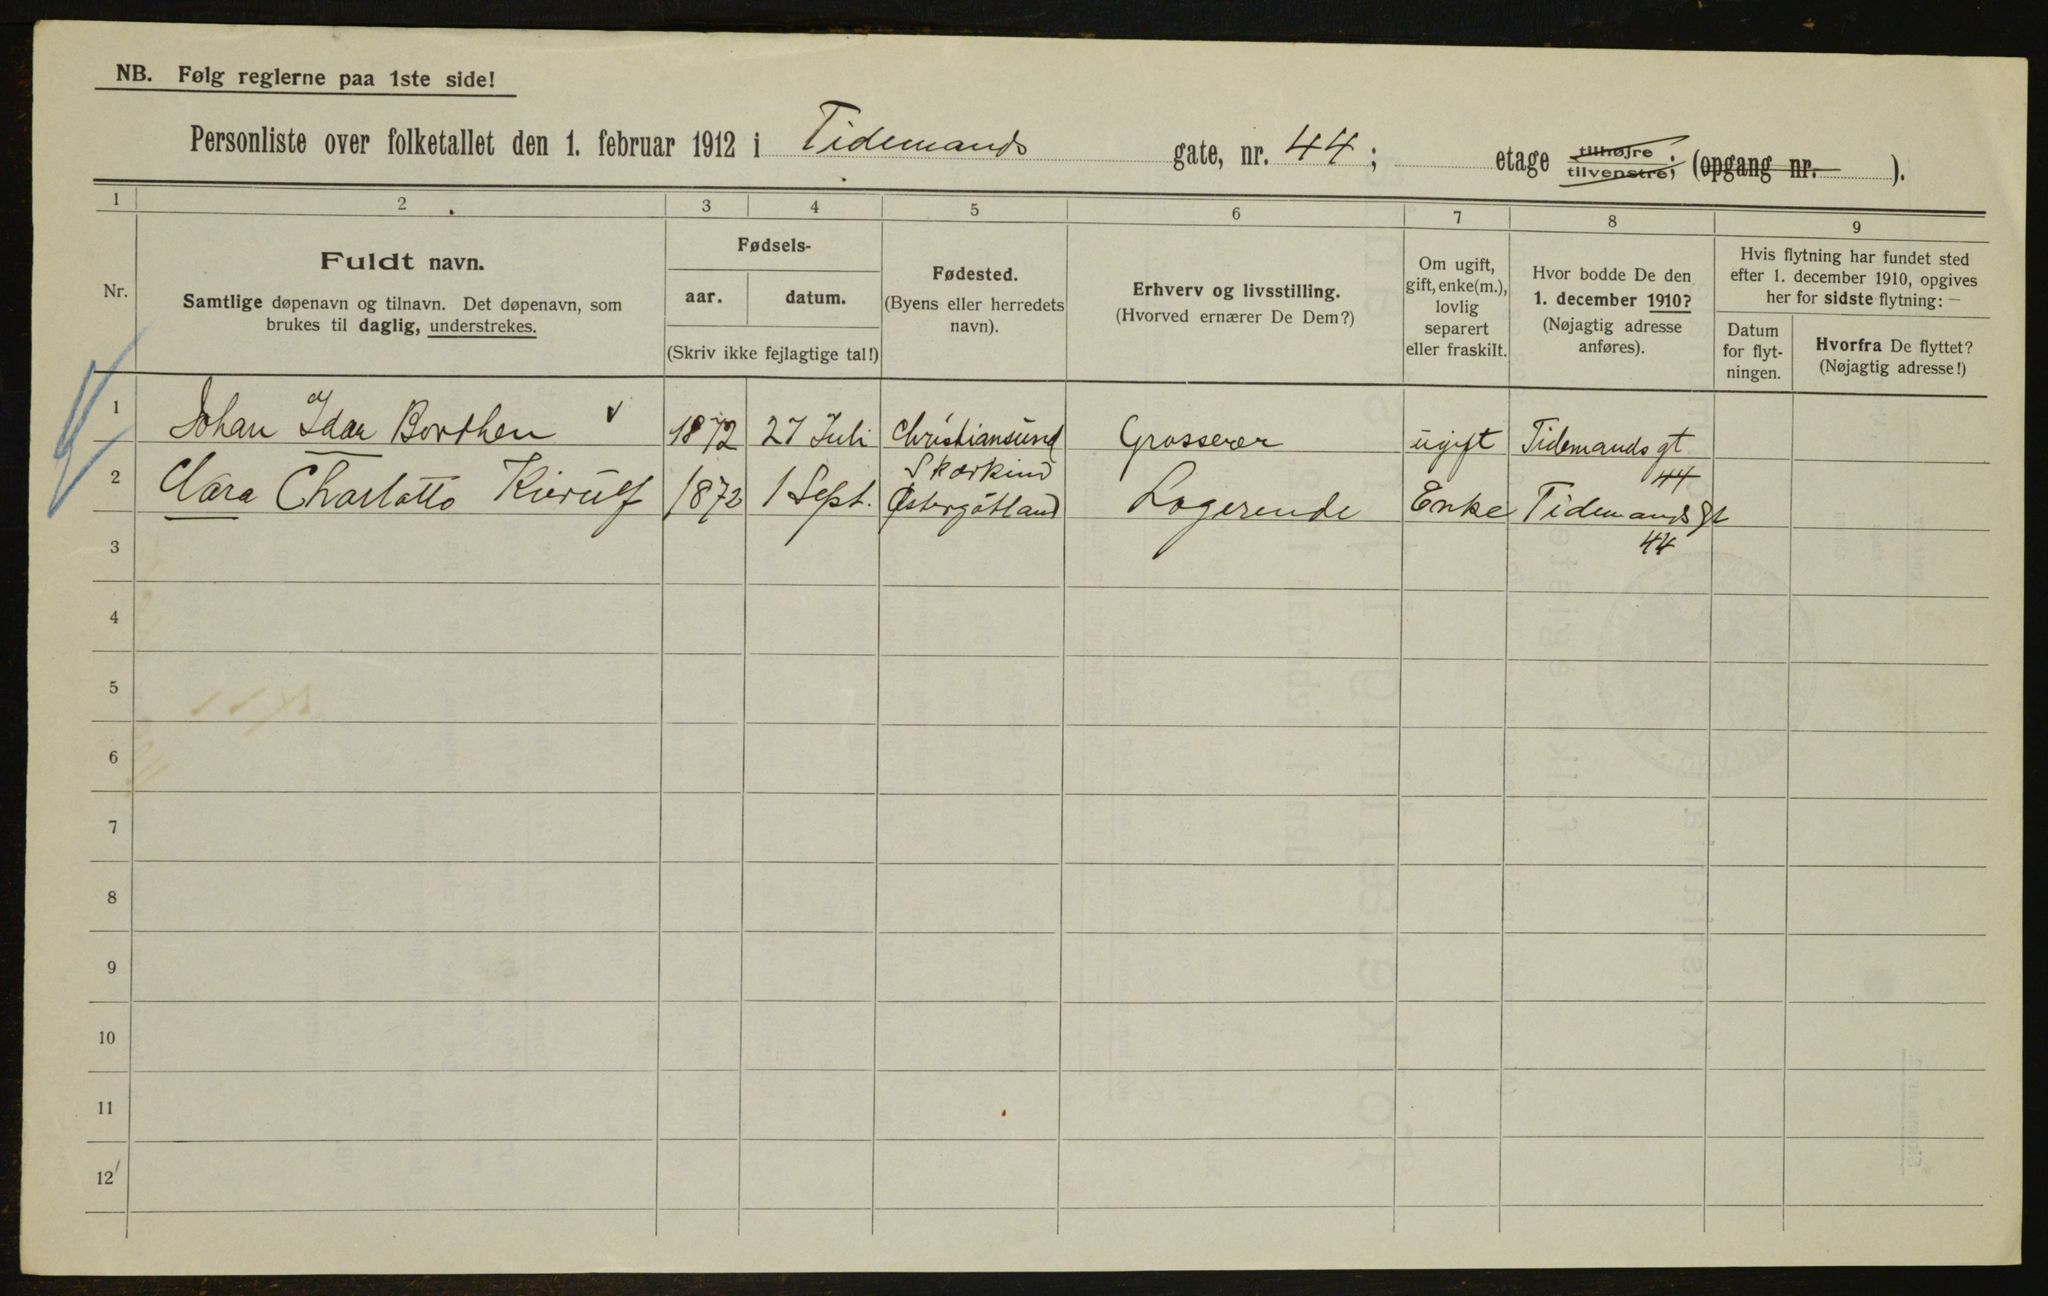 NB. Følg reglerne paa 1ste side!
Personliste over folketallet den 1. februar 1912 i Tidemands gate, nr. 44; etage tilhøjre tilvenstre; (opgang nr. ).
1 2 3 4 5 6 7 8 9
Nr.
Fuldt navn.
Samtlige døpenavn og tilnavn. Det døpenavn, som
brukes til daglig, understrekes.
Fødsels-
aar. datum.
(Skriv ikke fejlagtige tal!)
Fødested.
(Byens eller herredets
navn).
Erhverv og livsstilling.
(Hvorved ernærer De Dem?)
Om ugift,
gift, enke(m.),
lovlig
separert
eller fraskilt.
Hvor bodde De den
1. december 1910?
(Nøjagtig adresse
anføres).
Hvis flytning har fundet sted
efter 1. december 1910, opgives
her for sidste flytning: —
Datum
for flyt-
ningen.
Hvorfra De flyttet?
(Nøjagtig adresse!)
1 Johan Idar Borthen 1872 27 Juli Christiansund Grosserer ugift Tidemands gt
44
2 Clara Charlotta Kierulf 1872 1 Sept. Skærkind
Østergötland Logerende Enke Tidemands gt
44
3
4
5
6
7
8
9
10
11
12